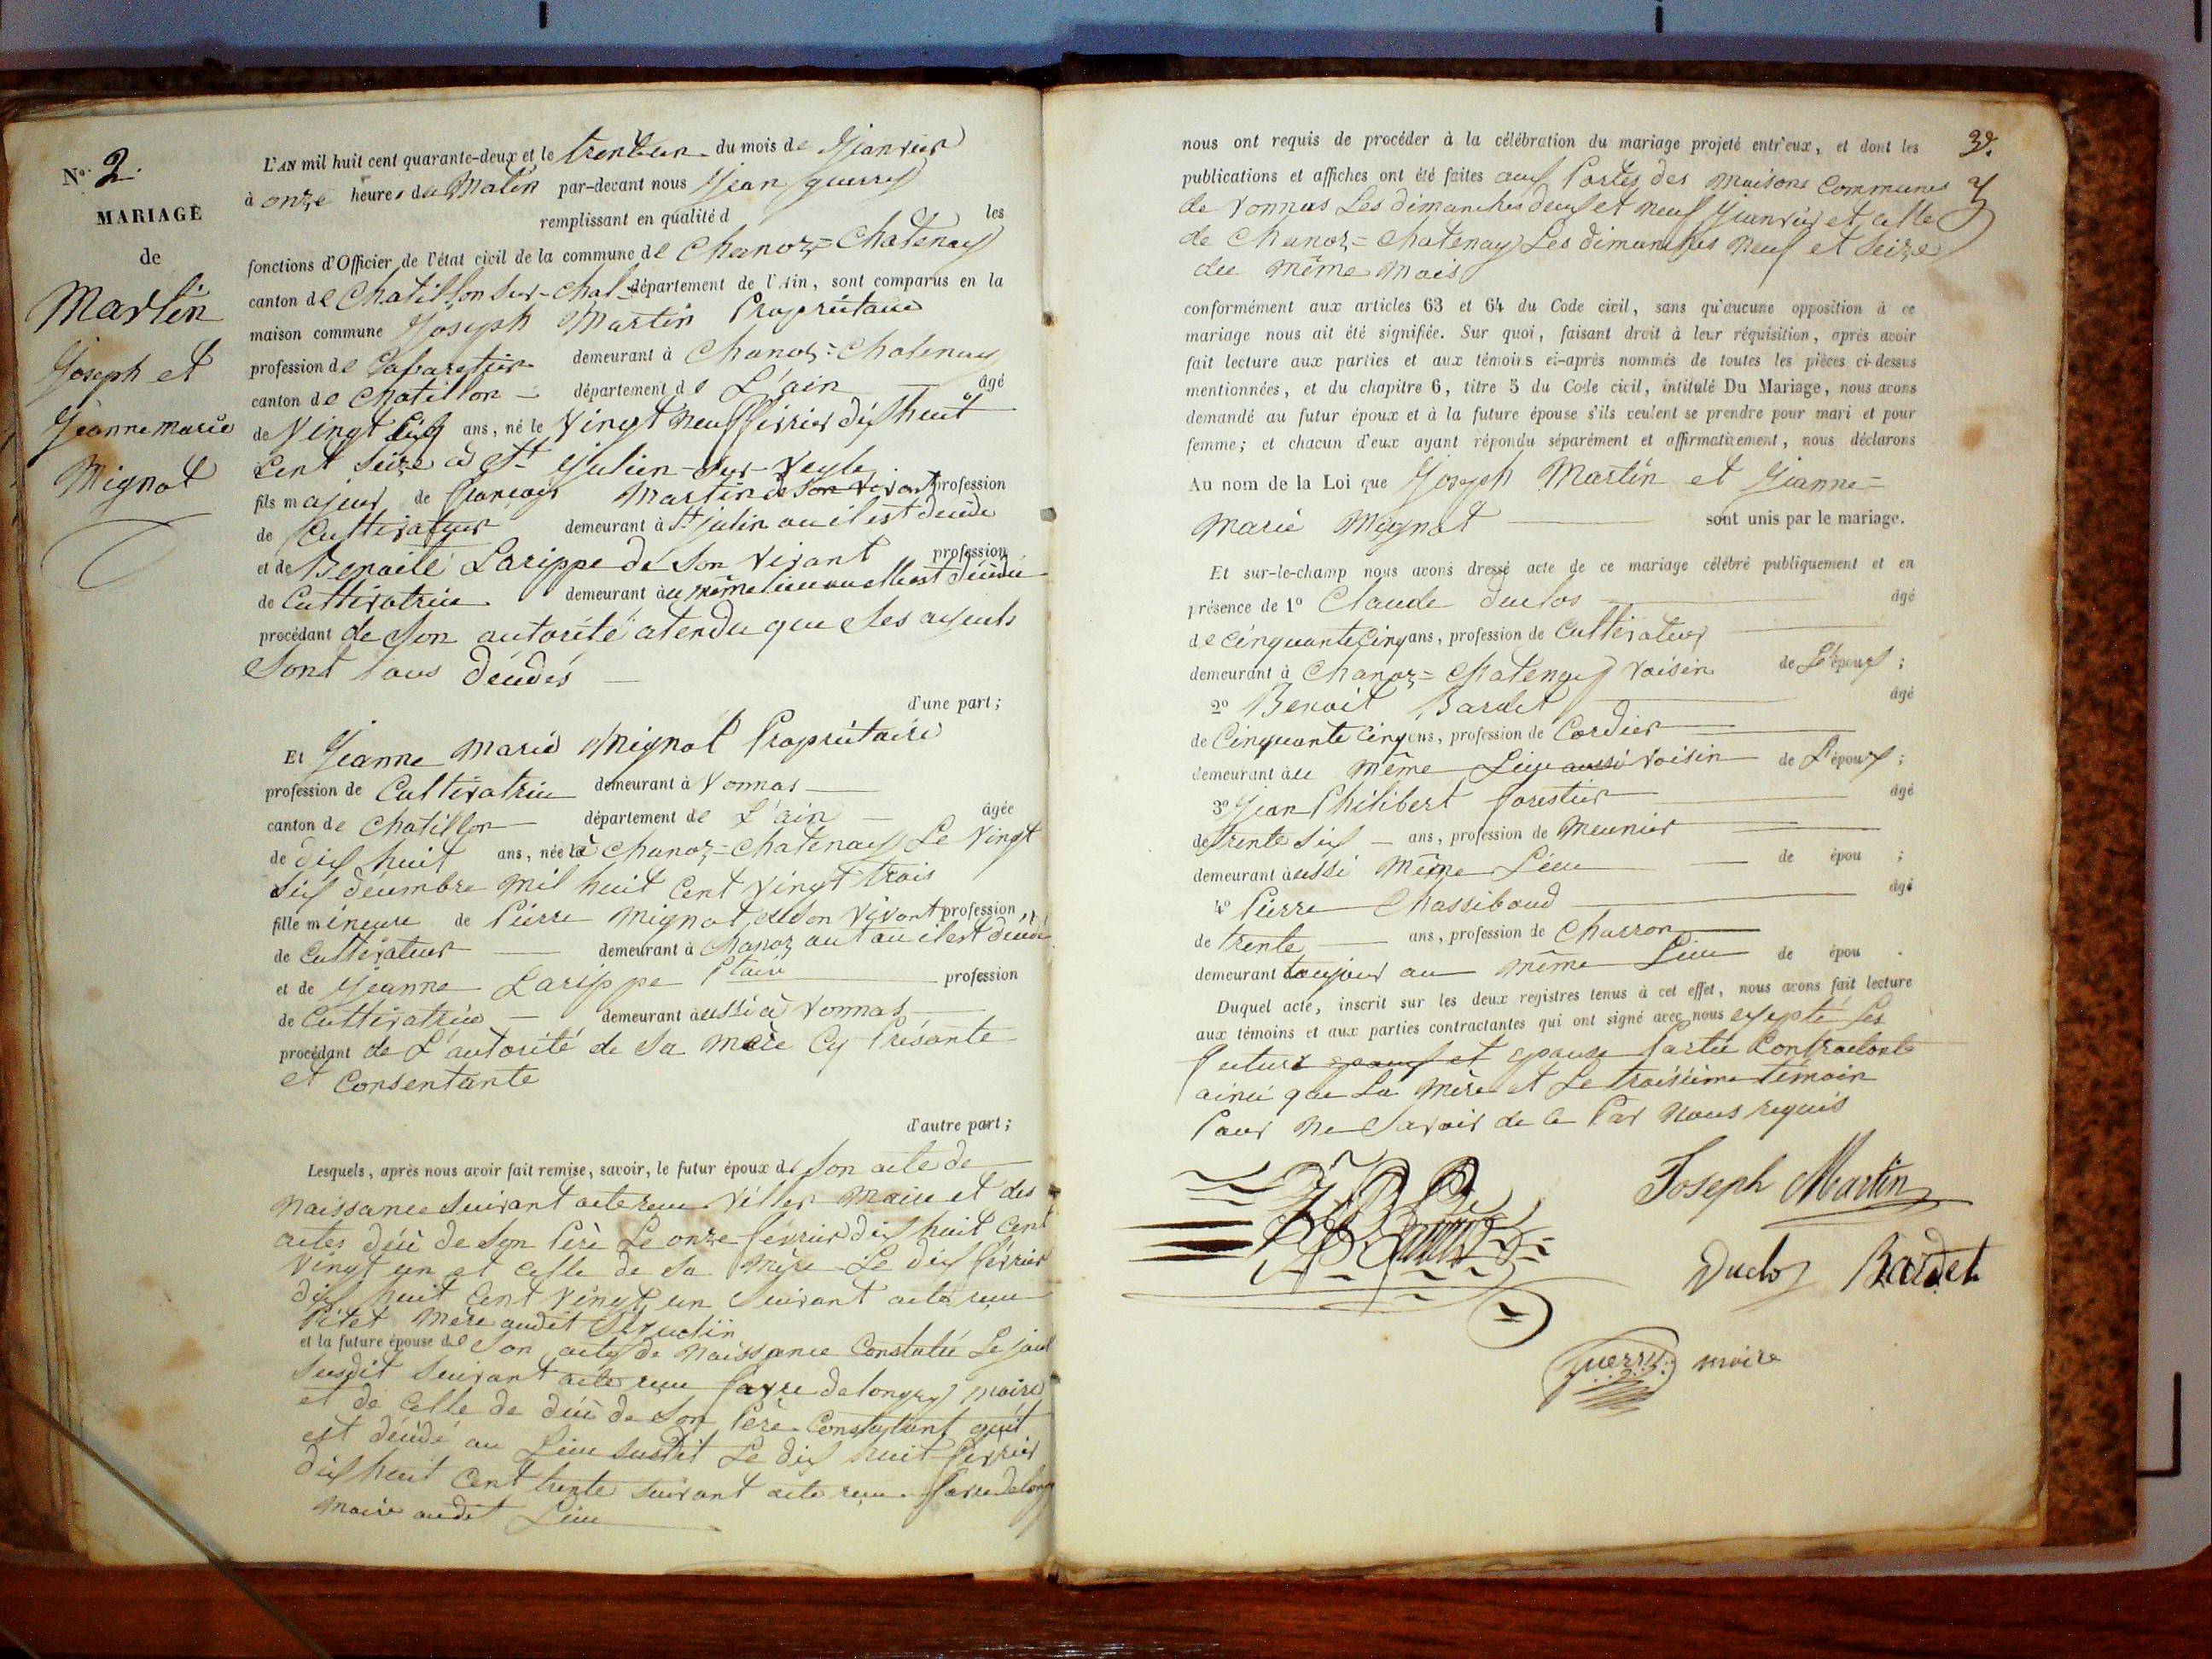 N.o 2.
MARIAGE
de
Martin
Joseph et
Jeanne marie
Mignot
L'AN mil huit cent quarante-deux et le trente un du mois de Janvier
à onze heures du Matin par-devant nous Jean guerry
remplissant en qualité d les
fonctions d'Officier de l'état civil de la commune de Chanoz=Chatenay
canton de Chatillon sur-Chal département de l'Ain, sont comparus en la
maison commune Joseph Martin Propriétaire
profession de Cabaretier demeurant à Chanoz=Chatenay
canton de Chatillon département de L'ain âgé
de Vingt Cinq ans, né le Vingt neuf février dix huit
Cent Seize à St Julien-Sur-Veyle
fils majeur de françois Martin de Son vivant profession
de Cultivateur demeurant à St julin ou il est décédé
et de Benoite Larippe de Son vivant profession
de Cultivatrice demeurant au même lieu ou elle est décédée
procédant de Son autorité atendu que Ses ayeuls
Sont tous décédés
d'une part;
Et Jeanne Marie Mignot Propriétaire
profession de Cultivatrice demeurant à Vonnas
canton de Chatillon département de L'ain âgée
de dix huit ans, née à Chanoz=Chatenay Le Vingt
Six décembre mil huit Cent vingt trois
fille mineure de Pierre Mignot de Son Vivant profession
de Cultivateur demeurant à Chanoz ou il est décédé
et de Jeanne Larippe Ptaire profession
de Cultivatrice demeurant aussi à Vonnas
procédant de L'autorité de Sa Mère Cy Présante
et Consentante
d'autre part;
Lesquels, après nous avoir fait remise, savoir, le futur époux de Son acte de
Naissance Suivant acte reçu Maire et des
actes décè de Son Père Le onze février dix huit Cent
Vingt un et Celle de Sa Mère Le dix février
dix huit Cent Vingt un Suivant acte reçu
audit
et la future épouse de Son acte de Naissance Constatée Le jour
Susdit Suivant acte reçu favre delongry maire
et de Celle de décè de Son Père Constatant qu'il
est décédé au Lieu Susdit Le dix huit février
dix huit Cent trente Suivant acte reçu favre delong
Maire audit Lieu
3e.
nous ont requis de procéder à la célébration du mariage projeté entr'eux, et dont les
publications et affiches ont été faites aux Portes des Maisons Communes
de Vonnas Les dimanches deux et neuf Janvier et celle
de Chanoz=Chatenay Les dimanches Neuf et Seize
du Même Mois
conformément aux articles 63 et 64 du Code civil, sans qu'aucune opposition à ce
mariage nous ait été signifiée. Sur quoi, faisant droit à leur réquisition, après avoir
fait lecture aux parties et aux témoins ci-après nommés de toutes les pièces ci-dessus
mentionnées, et du chapitre 6, titre 5 du Code civil, intitulé Du Mariage, nous avons
demandé au futur époux et à la future épouse s'ils veulent se prendre pour mari et pour
femme; et chacun d'eux ayant répondu séparément et affirmativement, nous déclarons
Au nom de la Loi que Joseph Martin et Jeanne=
Marie Mignot sont unis par le mariage.
Et sur-le-champ nous avons dressé acte de ce mariage célébré publiquement et en
présence de 1o Claude duclos âgé
de cinquante Cinq ans, profession de Cultivateur
demeurant à Chanoz=Chatenay Voisin de L'époux;
2o Benoit Bardet âgé
de Cinquante Cinq ans, profession de Cordier
demeurant au Même Lieu aussi voisin de L'époux;
3o Jean Philibert forestier âgé
de trente Six ans, profession de Meunier
demeurant aussi Même Lieu de épou ;
4o Pierre Chassiboud âgé
de trente ans, profession de Charron
demeurant toujour au même Lieu de épou .
Duquel acte, inscrit sur les deux registres tenus à cet effet, nous avons fait lecture
aux témoins et aux parties contractantes qui ont signé avec nous exepté Les
future epoux et epouse Partie Contractante
ainsi que La Mère et Le troisième témoin
Pour Ne Savoir de ce Par Nous requis
Joseph Martin
Duclos Bardet
guerry maire